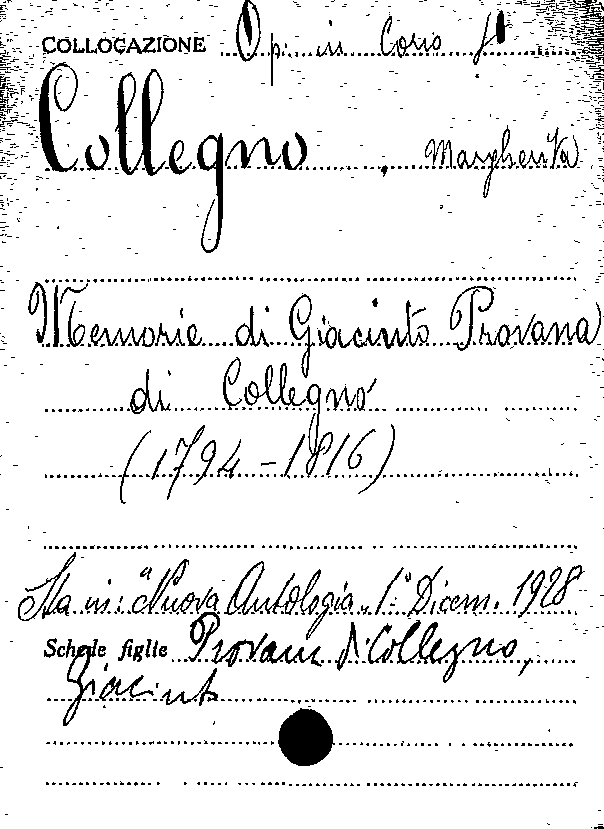 COLLOCAZIONE Op. in Corso
Collegno, Margherita
Memorie di Giacinto Provana
di Collegno
(1794-1816)
Sta in: "Nuova Antologia" 1° Dicem. 1928
Schede figlie Provana di Collegno,
Giacinto